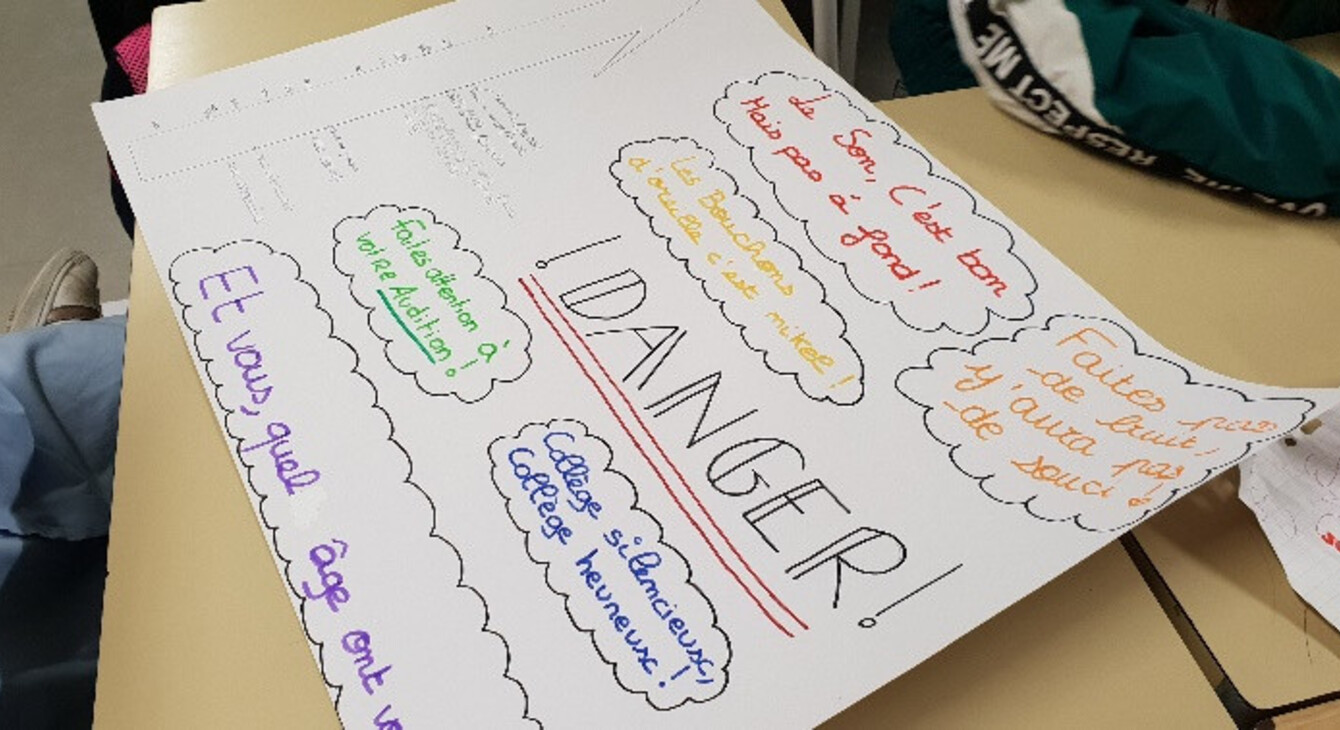 Le Son, C'est bon
Mais pas à fond!
Les Bouchons
d'oreille c'est mikee!
Faites pas
de bruit,
y'aura pas
de souci!
faites attention à
votre Audition!
! DANGER!
Collège silencieux,
Collège heureux!
Et vous, quel âge ont
RESPECT ME